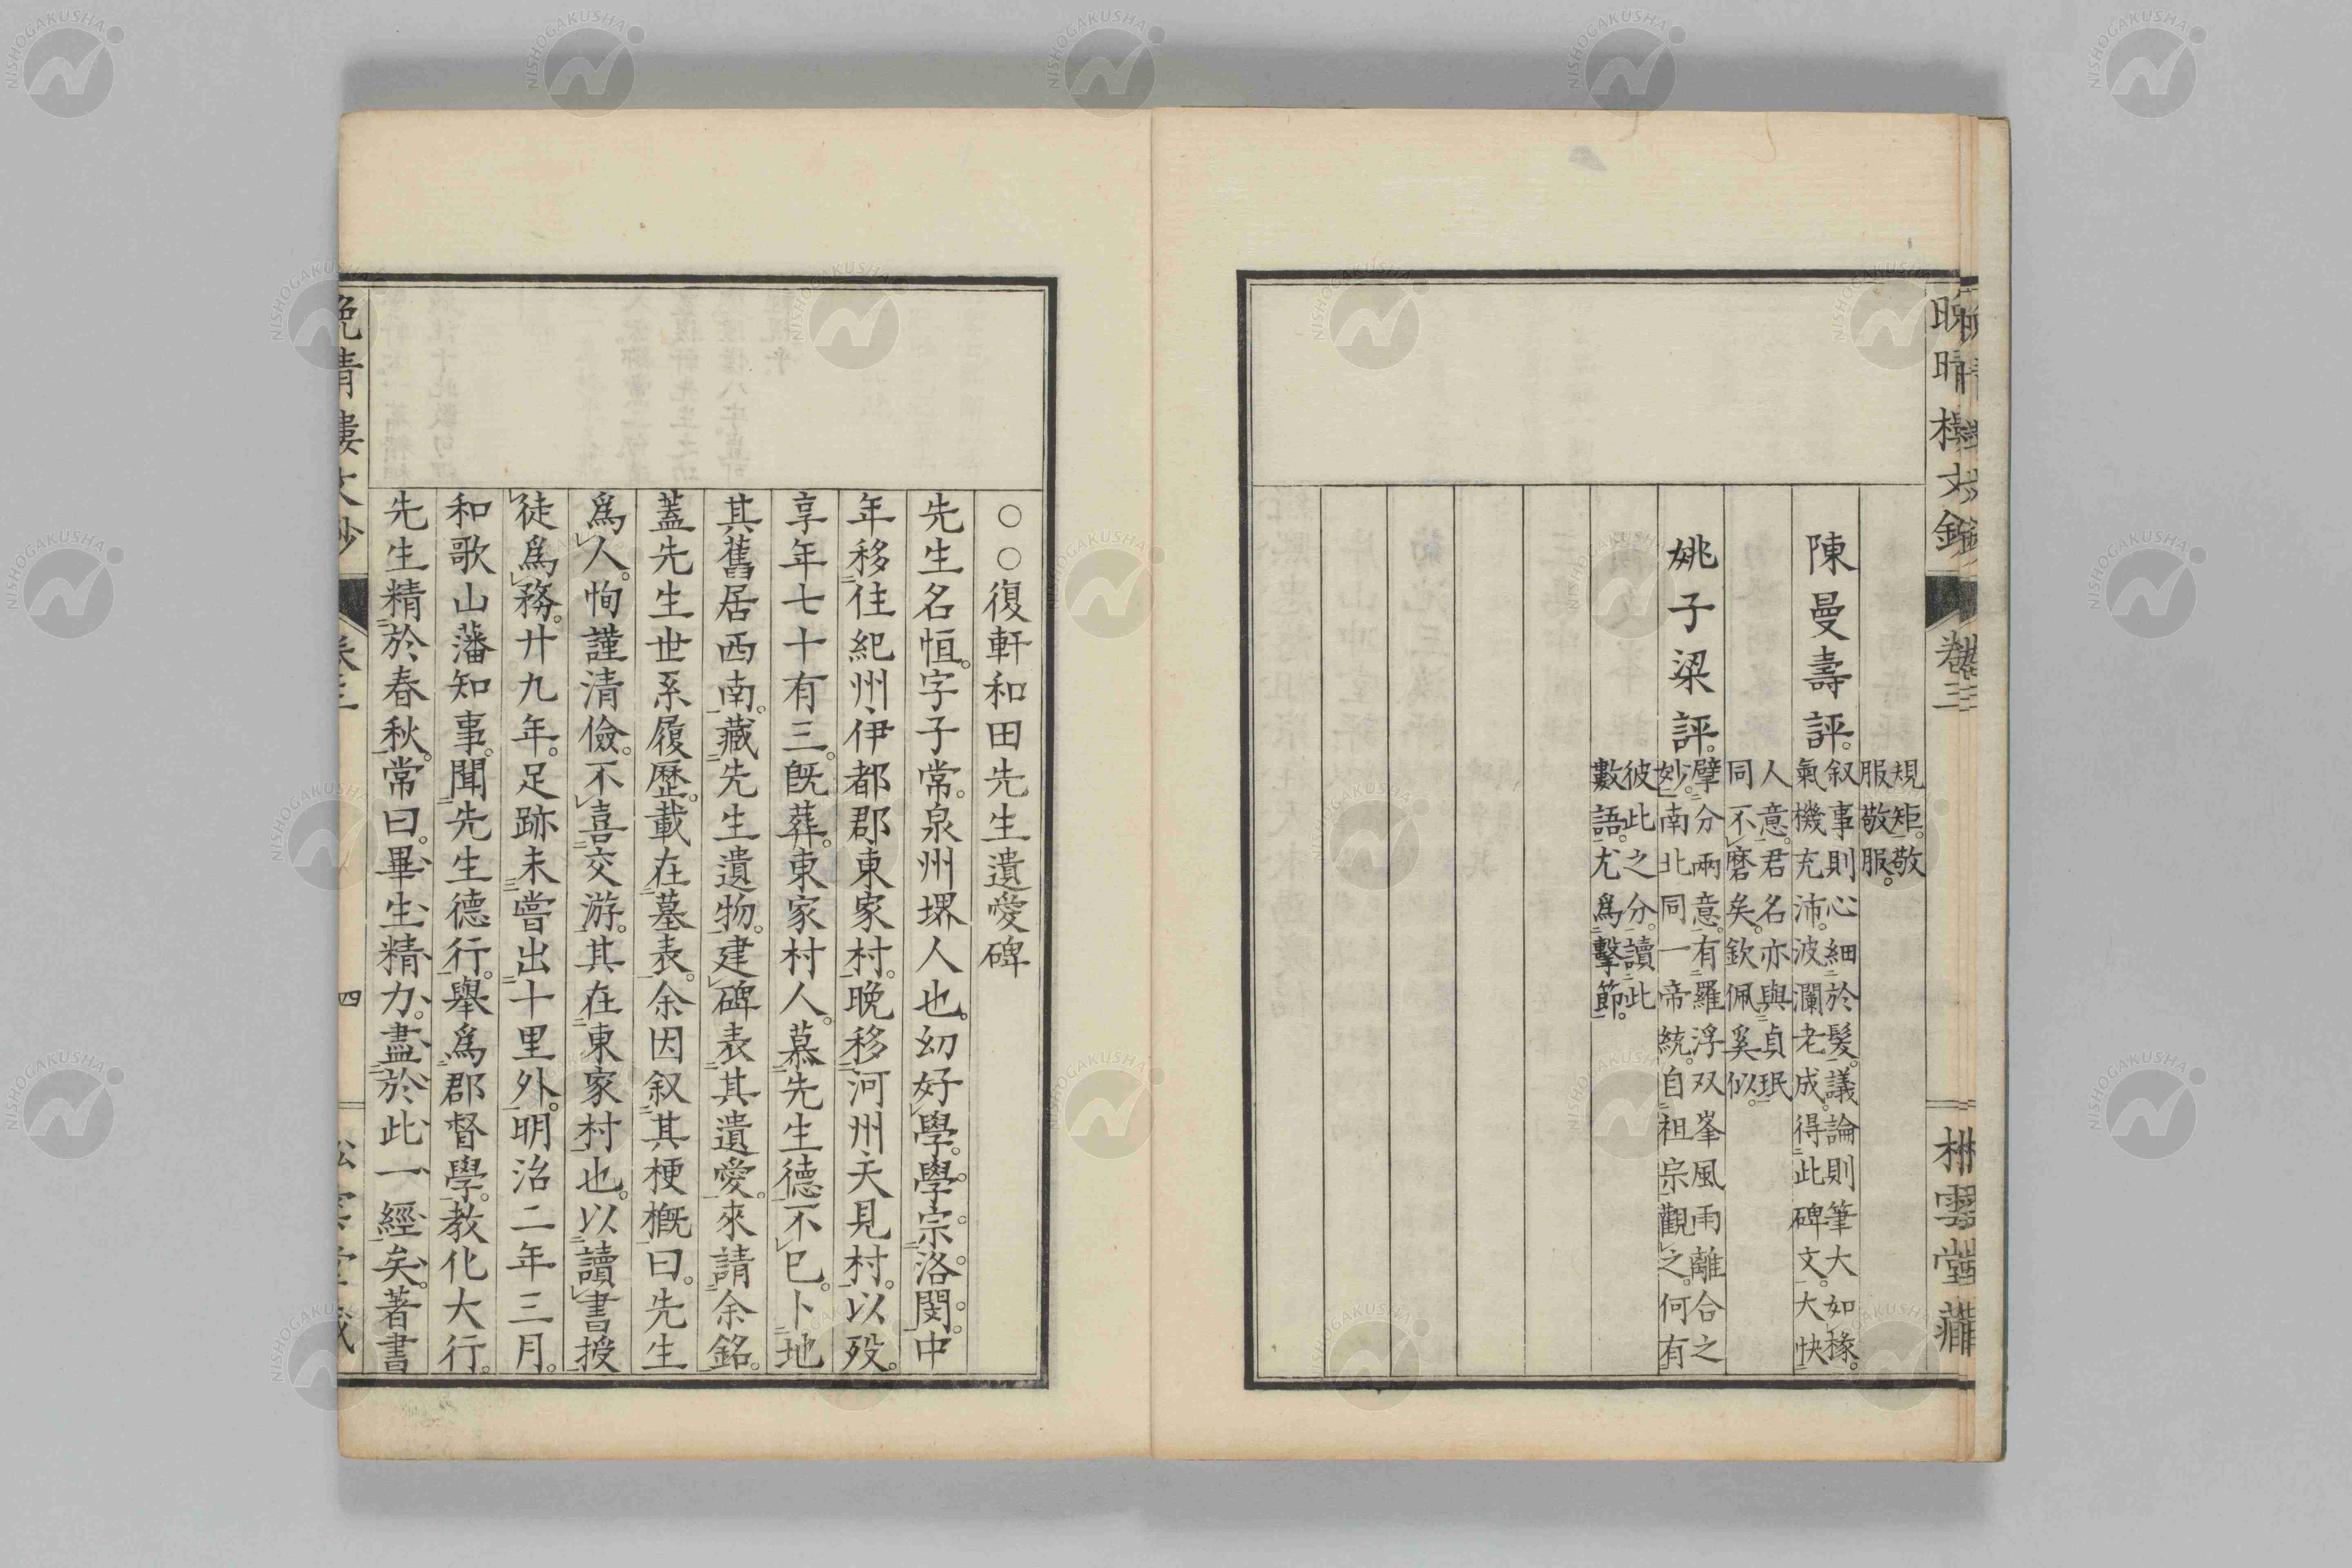 規矩。敬
服敬服。
陳曼壽評。
叙事則心細於髮。議論則筆大如椽。
氣機充沛。波瀾老成。得此碑文。大快
人意。君名亦與貞珉
同不磨矣。欽佩奚似。
姚子梁評。
擘分兩意。有羅浮双峯風雨離合之
妙。南北同一帝統。自祖宗觀之。何有
彼此之分。讀此
數語。尤爲擊節。
○○復軒和田先生遺愛碑
先生名恒。字子常。泉州堺人也。幼好學。學宗洛閩。中
年移住紀州伊都郡東家村。晚移河州天見村。以歿。
享年七十有三。既葬。東家村人。慕先生德不已。卜地
其舊居西南。藏先生遺物。建碑表其遺愛。來請余銘。
蓋先生世系履歷。載在墓表。余因叙其梗概曰。先生
爲人。恂謹清儉。不喜交游。其在東家村也。以讀書授
徒爲務。廿九年。足跡未嘗出十里外。明治二年三月。
和歌山藩知事。聞先生德行。舉爲郡督學。教化大行。
先生精於春秋。常曰。畢生精力。盡於此一經矣。著書
卷三
四
NISHOGAKUSHA